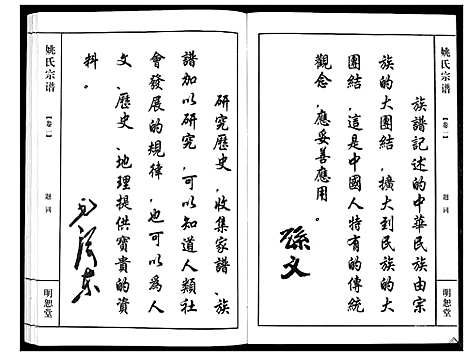 族譜記述的中華民族由宗
族的大團結，擴大到民族的大
團結，這是中國人特有的傳統
觀念，應妥善應用。
孫文
姚氏宗谱
【卷二】
题词
明恕堂
研究歷史，收集家譜、族
譜加以研究，可以知道人類社
會發展的規律，也可以爲人
文、歷史、地理提供寶貴的資
料。
毛澤东
姚氏宗谱
【卷二】
题词
明恕堂